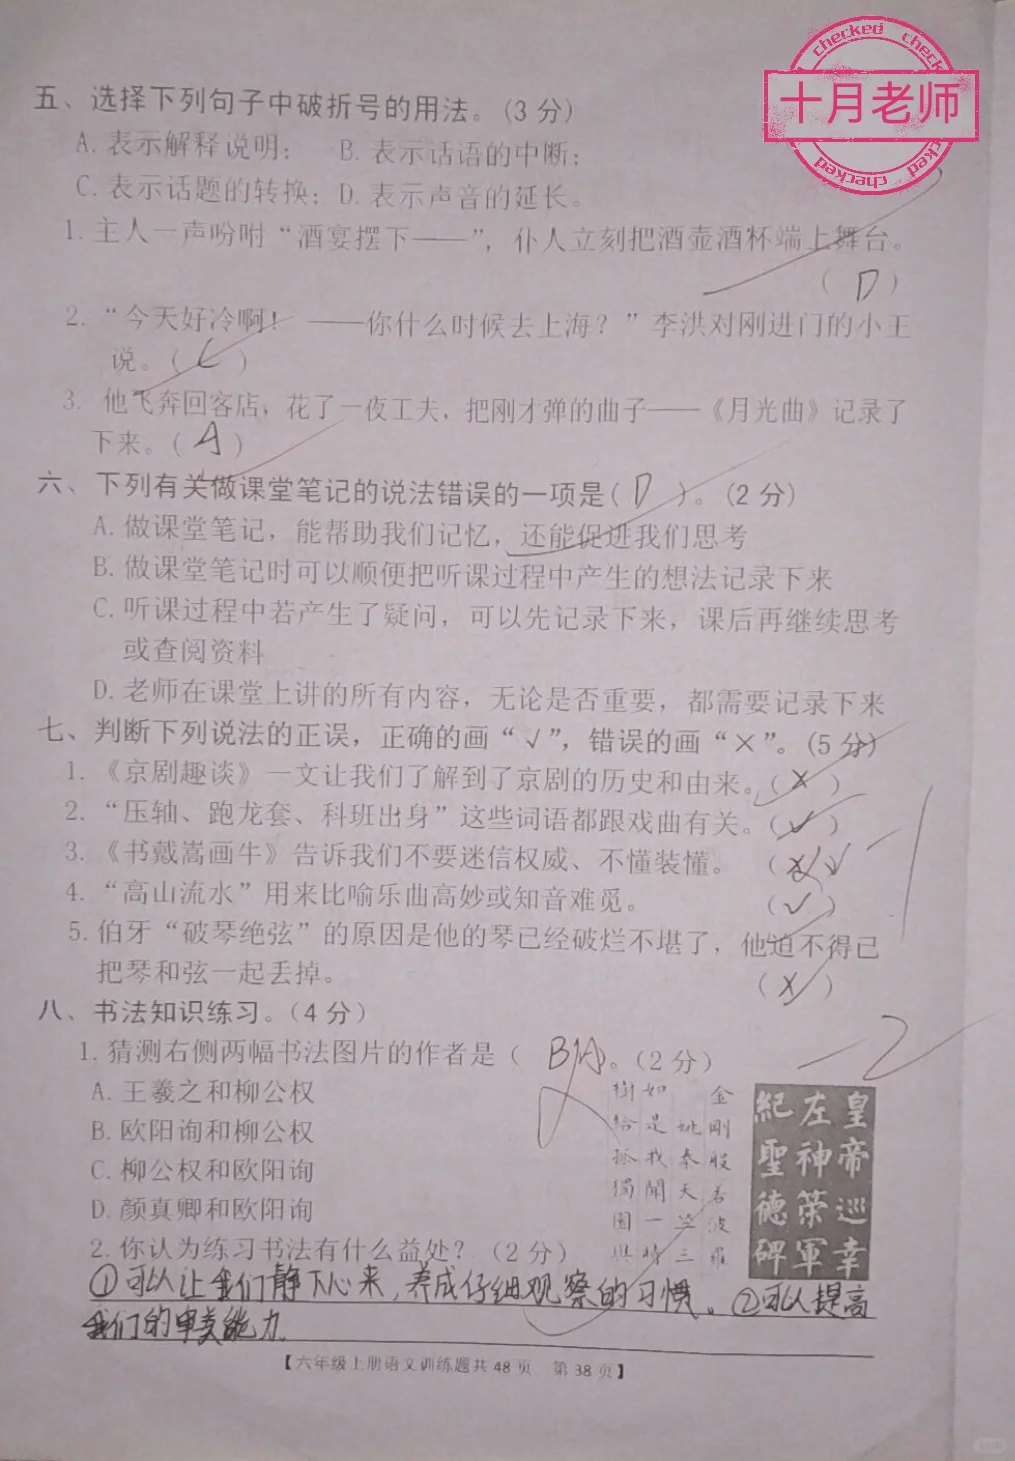 checked
十月老师
checked
五、选择下列句子中破折号的用法。(3分)
A.表示解释说明； B.表示话语的中断；
C.表示话题的转换；D.表示声音的延长。
1.主人一声吩咐“酒宴摆下——”，仆人立刻把酒壶酒杯端上舞台。
( D )
2.“今天好冷啊！——你什么时候去上海？”李洪对刚进门的小王
说。( C )
3.他飞奔回客店，花了一夜工夫，把刚才弹的曲子——《月光曲》记录了
下来。( A )
六、下列有关做课堂笔记的说法错误的一项是( D )。(2分)
A.做课堂笔记，能帮助我们记忆，还能促进我们思考
B.做课堂笔记时可以顺便把听课过程中产生的想法记录下来
C.听课过程中若产生了疑问，可以先记录下来，课后再继续思考
或查阅资料
D.老师在课堂上讲的所有内容，无论是否重要，都需要记录下来
七、判断下列说法的正误，正确的画“√”，错误的画“×”。(5分)
1.《京剧趣谈》一文让我们了解到了京剧的历史和由来。( × )
2.“压轴、跑龙套、科班出身”这些词语都跟戏曲有关。( √ )
3.《书戴嵩画牛》告诉我们不要迷信权威、不懂装懂。 ( × √
4.“高山流水”用来比喻乐曲高妙或知音难觅。 ( √ )
5.伯牙“破琴绝弦”的原因是他的琴已经破烂不堪了，他迫不得已
把琴和弦一起丢掉。 ( × )
-1
八、书法知识练习。(4分)
-2
1.猜测右侧两幅书法图片的作者是( B A )。(2分)
A.王羲之和柳公权
B.欧阳询和柳公权
C.柳公权和欧阳询
D.颜真卿和欧阳询
金剛般若波羅
姚秦天竺三
如是我聞一時
樹給孤獨園與
皇帝巡幸
左神策軍
紀聖德碑
2.你认为练习书法有什么益处？(2分)
①可以让我们静下心来，养成仔细观察的习惯。②可以提高
我们的审美能力
【六年级上册语文训练题共48页 第38页】